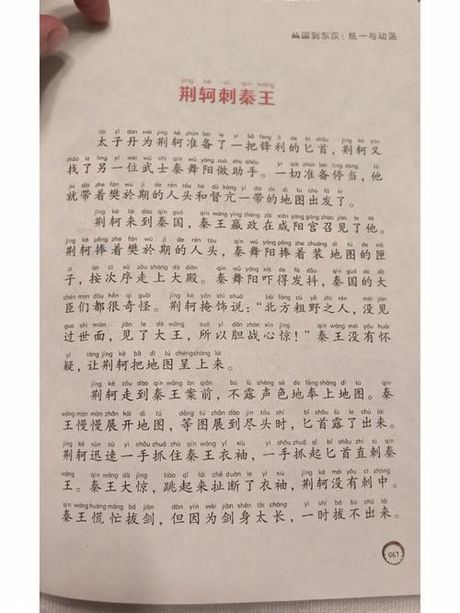 战国到东汉：统一与动荡
荆轲刺秦王
太子丹为荆轲准备了一把锋利的匕首，荆轲又
找了另一位武士秦舞阳做助手。一切准备停当，他
就带着樊於期的人头和督亢一带的地图出发了。
荆轲来到秦国，秦王嬴政在咸阳宫召见了他。
荆轲捧着樊於期的人头，秦舞阳捧着装地图的匣
子，按次序走上大殿。秦舞阳吓得发抖，秦国的大
臣们都很奇怪。荆轲掩饰说：“北方粗野之人，没见
过世面，见了大王，所以胆战心惊！”秦王没有怀
疑，让荆轲把地图呈上来。
荆轲走到秦王案前，不露声色地奉上地图。秦
王慢慢展开地图，等图展到尽头时，匕首露了出来。
荆轲迅速一手抓住秦王衣袖，一手抓起匕首直刺秦
王。秦王大惊，跳起来扯断了衣袖，荆轲没有刺中。
秦王慌忙拔剑，但因为剑身太长，一时拔不出来。
067